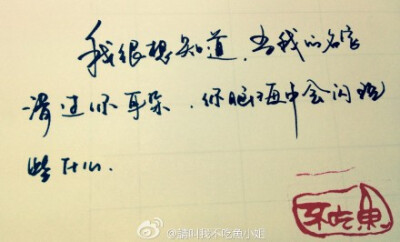 我很想知道,当我的名字
滑过你耳朵,你脑海中会闪现
些什么.
不吃鱼
@请叫我不吃鱼小姐